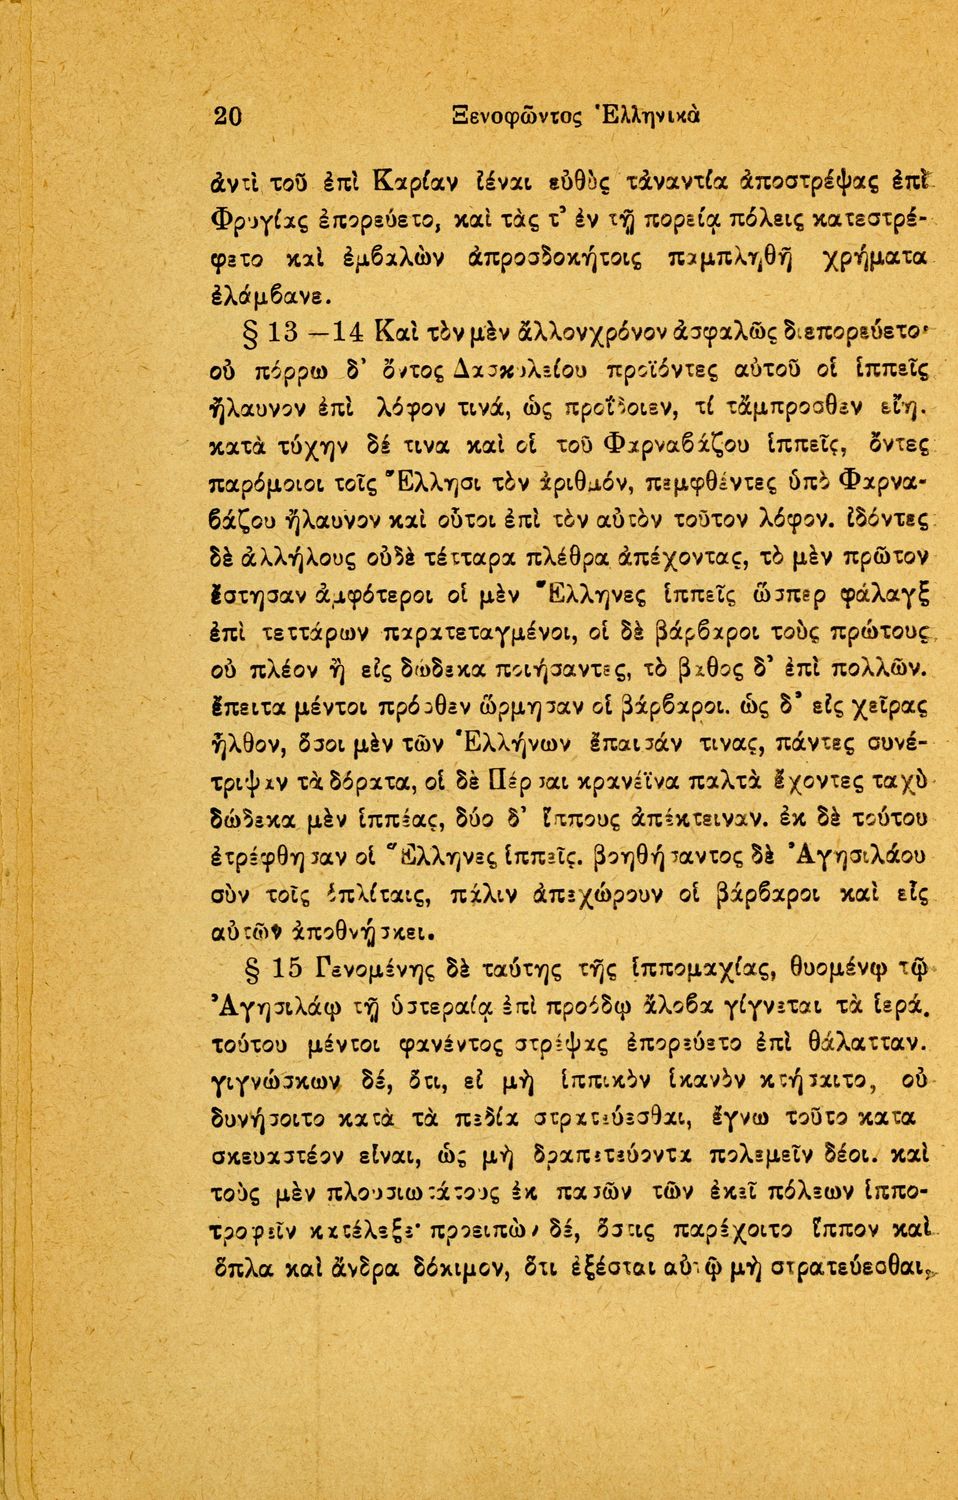 20 Ξενοφῶντος Ἑλληνικὰ
ἀντὶ τοῦ ἐπὶ Καρίαν ἰέναι εὐθὺς τἀναντία ἀποστρέψας ἐπὶ
Φρυγίας ἐπορεύετο, καὶ τὰς τ’ ἐν τῇ πορείᾳ πόλεις κατεστρέ-
φετο καὶ ἐμβαλὼν ἀπροσδοκήτοις παμπληθῆ χρήματα
ἐλάμβανε.
§ 13 —14 Καὶ τὸν μὲν ἄλλονχρόνον ἀσφαλῶς διεπορεύετο·
οὐ πόρρω δ’ ὄντος Δασκυλείου προϊόντες αὐτοῦ οἱ ἱππεῖς
ἤλαυνον ἐπὶ λόφον τινά, ὡς προΐδοιεν, τί τἄμπροσθεν εἴη.
κατὰ τύχην δέ τινα καὶ οἱ τοῦ Φαρναβάζου ἱππεῖς, ὄντες
παρόμοιοι τοῖς Ἕλλησι τὸν ἀριθμόν, πεμφθέντες ὑπὸ Φαρνα-
βάζου ἤλαυνον καὶ οὗτοι ἐπὶ τὸν αὐτὸν τοῦτον λόφον. ἰδόντες
δὲ ἀλλήλους οὐδὲ τέτταρα πλέθρα ἀπέχοντας, τὸ μὲν πρῶτον
ἔστησαν ἀμφότεροι οἱ μὲν Ἕλληνες ἱππεῖς ὥσπερ φάλαγξ
ἐπὶ τεττάρων παρατεταγμένοι, οἱ δὲ βάρβαροι τοὺς πρώτους
οὐ πλέον ἢ εἰς δώδεκα ποιήσαντες, τὸ βάθος δ’ ἐπὶ πολλῶν.
ἔπειτα μέντοι πρόσθεν ὥρμησαν οἱ βάρβαροι. ὡς δ’ εἰς χεῖρας
ἦλθον, ὅσοι μὲν τῶν Ἑλλήνων ἔπαισάν τινας, πάντες συνέ-
τριψαν τὰ δόρατα, οἱ δὲ Πέρσαι κρανέϊνα παλτὰ ἔχοντες ταχὺ
δώδεκα μὲν ἱππέας, δύο δ’ ἵππους ἀπέκτειναν. ἐκ δὲ τούτου
ἐτρέφθησαν οἱ Ἕλληνες ἱππεῖς. βοηθήσαντος δὲ Ἀγησιλάου
σὺν τοῖς ὁπλίταις, πάλιν ἀπεχώρουν οἱ βάρβαροι καὶ εἷς
αὐτῶν ἀποθνῄσκει.
§ 15 Γενομένης δὲ ταύτης τῆς ἱππομαχίας, θυομένῳ τῷ
Ἀγησιλάῳ τῇ ὑστεραίᾳ ἐπὶ προόδῳ ἄλοβα γίγνεται τὰ ἱερά.
τούτου μέντοι φανέντος στρέψας ἐπορεύετο ἐπὶ θάλατταν.
γιγνώσκων δέ, ὅτι, εἰ μὴ ἱππικὸν ἱκανὸν κτήσαιτο, οὐ
δυνήσοιτο κατὰ τὰ πεδία στρατεύεσθαι, ἔγνω τοῦτο κατα
σκευαστέον εἶναι, ὡς μὴ δραπετεύοντα πολεμεῖν δέοι. καὶ
τοὺς μὲν πλουσιωτάτους ἐκ πασῶν τῶν ἐκεῖ πόλεων ἱππο-
τροφεῖν κατέλεξε· προειπὼν δέ, ὅστις παρέχοιτο ἵππον καὶ
ὅπλα καὶ ἄνδρα δόκιμον, ὅτι ἐξέσται αὐτῷ μὴ στρατεύεσθαι,